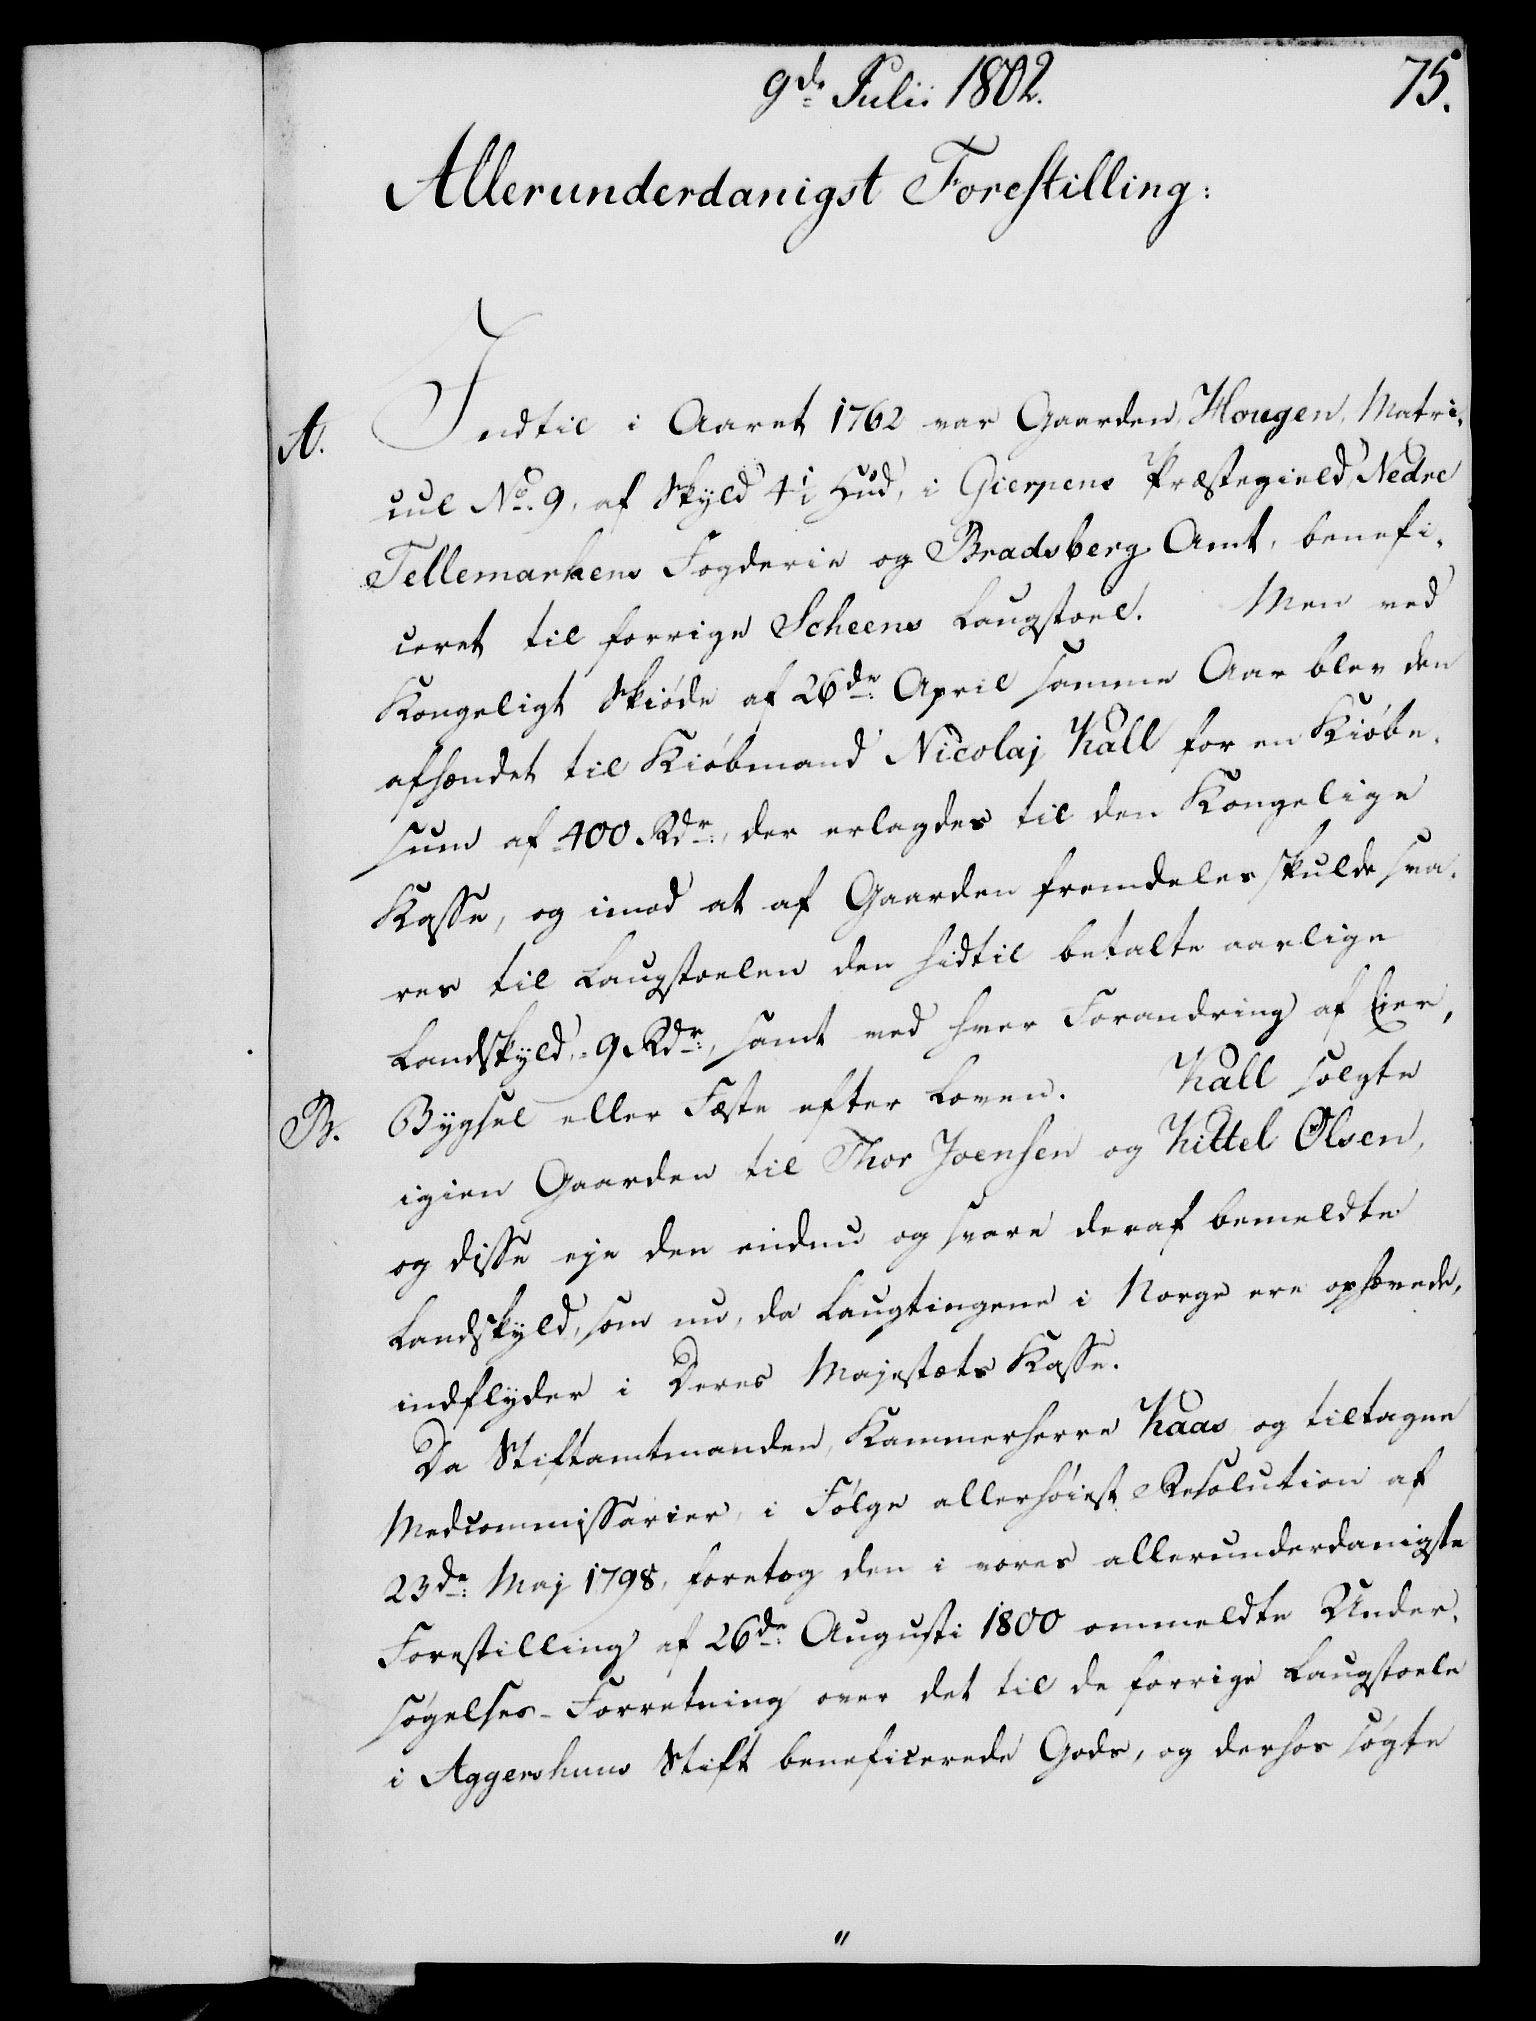 9de Julii 1802.
75.
Allerunderdanigst Forestilling:
A.
Indtil i Aaret 1762 var Gaarden Hougen, Matri-
cul No. 9, af Skyld Hud, i Gierpens Præstegield, Nedre
Tellemarkens Fogderie og Bradsberg Amt, benefi-
ceret til forrige Scheens Laugstoel. Men ved
Kongeligt Skiøde af 26de April samme Aar blev den
afhændet til Kiøbmand Nicolaj Kall for en Kiøbe-
sum af 400 Rdr., der erlagdes til den Kongelige
Kasse, og imod at af Gaarden fremdeles skulde sva-
res til Laugstoelen den hidtil betalte aarlige
Landskyld, 9 Rdr., samt ved hver Forandring af Eier,
B.
Bygsel eller Fæste efter Loven. Kall solgte
igien Gaarden til Thor Joensen og Kittel Olsen,
og disse eje den endnu og svare deraf bemeldte
Landskyld, som nu, da Laugtingene i Norge ere ophævede,
indflyder i Deres Majestæts Kasse.
Da Stiftamtmanden, Kammerherre Kaas og tiltagne
Medcommissarier, i Følge allerhøiest Resolution af
23de Maj 1798, foretog den i vores allerunderdanigste
Forestilling af 26de Augusti 1800 ommeldte Under-
søgelses-Forretning over det til de forrige Laugstoele
i Aggershuus Stift beneficerede Gods, og derhos søgte
"